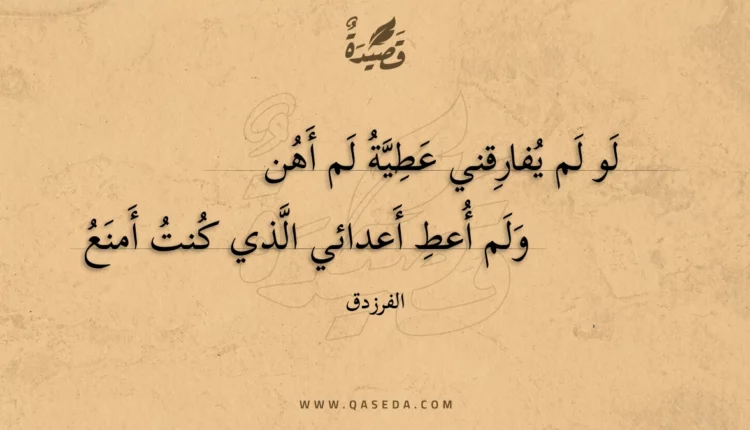 قَصِيْدَةٌ
لَو لَم يُفارِقني عَطِيَّةُ لَم أَهُن
وَلَم أُعطِ أَعدائي الَّذي كُنتُ أَمنَعُ
الفرزدق
WWW.QASEDA.COM